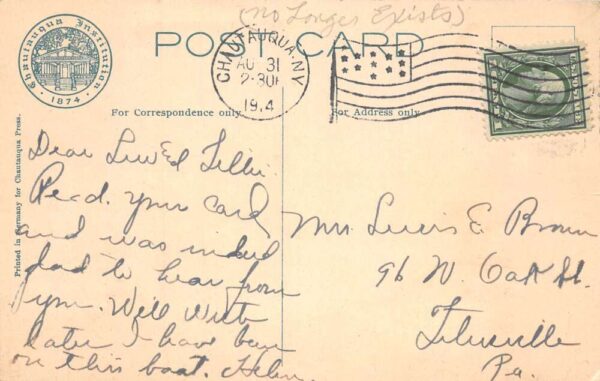 (no Longer Exists)
POST CARD
Chautauqua Institution
· 1874 ·
CHAUTAUQUA, N.Y.
AUG 31
2-30P
1914
For Correspondence only.
For Address only.
Printed in Germany for Chautauqua Press.
Dear Lew & Tillie
Rec-d. your card
and was indeed
glad to hear from
you. Will write
later I have been
on this boat. Helen
Mrs Lewis E Brown
96 W. Oak St.
Titusville
Pa.